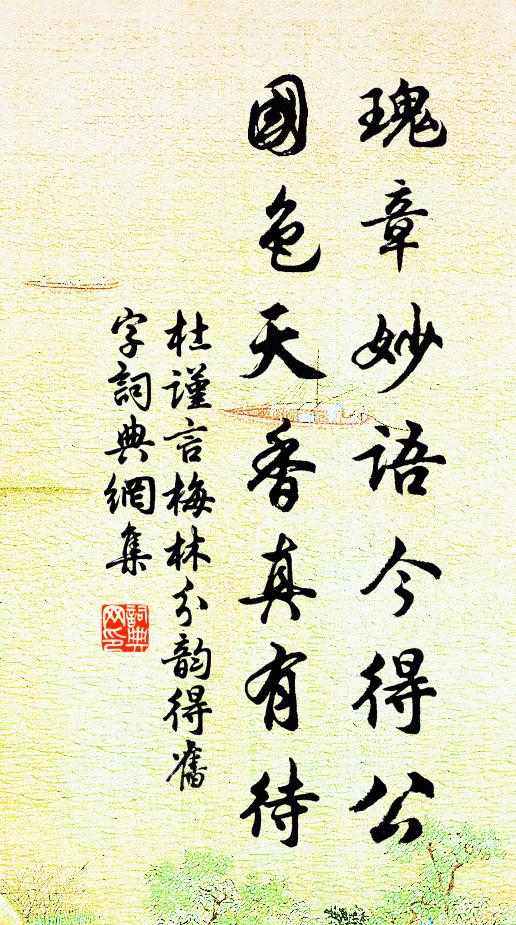 瑰章妙語今得公
國色天香真有待
杜謹言梅林分韵得舊
字詞典網集
詞典網印